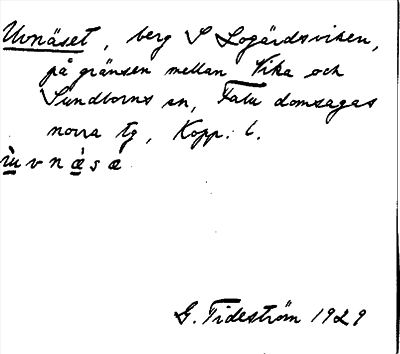 Uvnäset, berg S Logärdsviken,
på gränsen mellan Vika och
Sundborns sn, Falu domsagas
norra tg, Kopp. l.
ùvnæ̀sæ
G. Tideström 1929